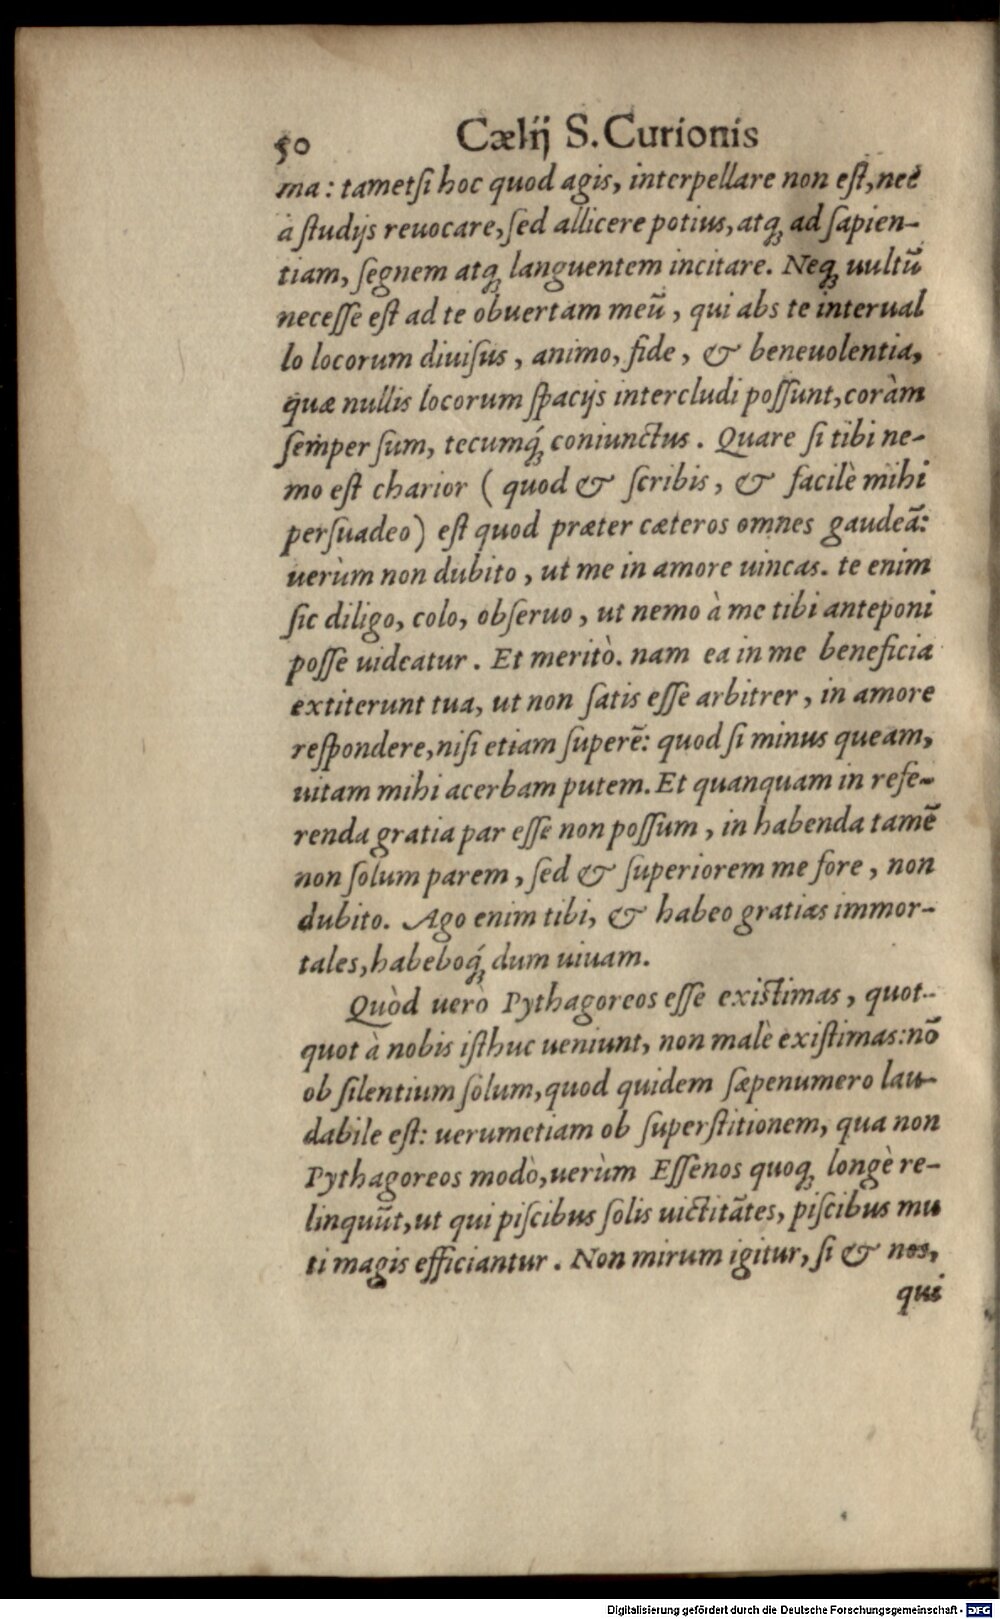 50 Cælij S. Curionis
ma: tametſi hoc quod agis, interpellare non eſt, nec
à ſtudijs reuocare, ſed allicere potius, atq́; ad ſapien-
tiam, ſegnem atq; languentem incitare. Neq; uultũ
neceſſe eſt ad te obuertam meũ, qui abs te interual
lo locorum diuiſus, animo, fide, & beneuolentia,
quæ nullis locorum ſpacijs intercludi poſſunt, coràm
ſemper ſum, tecumq́; coniunctus. Quare ſi tibi ne-
mo eſt charior (quod & ſcribis, & facilè mihi
perſuadeo) eſt quod præter cæteros omnes gaudeã:
uerùm non dubito, ut me in amore uincas. te enim
ſic diligo, colo, obſeruo, ut nemo à me tibi anteponi
poſſe uideatur. Et meritò. nam ea in me beneficia
extiterunt tua, ut non ſatis eſſe arbitrer, in amore
reſpondere, niſi etiam ſuperẽ: quod ſi minus queam,
uitam mihi acerbam putem. Et quanquam in refe-
renda gratia par eſſe non poſſum, in habenda tamẽ
non ſolum parem, ſed & ſuperiorem me fore, non
dubito. Ago enim tibi, & habeo gratias immor-
tales, habeboq́; dum uiuam.
Quòd uerò Pythagoreos eſſe exiſtimas, quot-
quot à nobis iſthuc ueniunt, non malè exiſtimas: nõ
ob ſilentium ſolum, quod quidem ſæpenumero lau-
dabile eſt: uerumetiam ob ſuperſtitionem, qua non
Pythagoreos modò, uerùm Eſſenos quoq; longè re-
linquũt, ut qui piſcibus ſolis uictitãtes, piſcibus mu
ti magis efficiantur. Non mirum igitur, ſi & nos,
qui
Digitalisierung gefördert durch die Deutsche Forschungsgemeinschaft - DFG